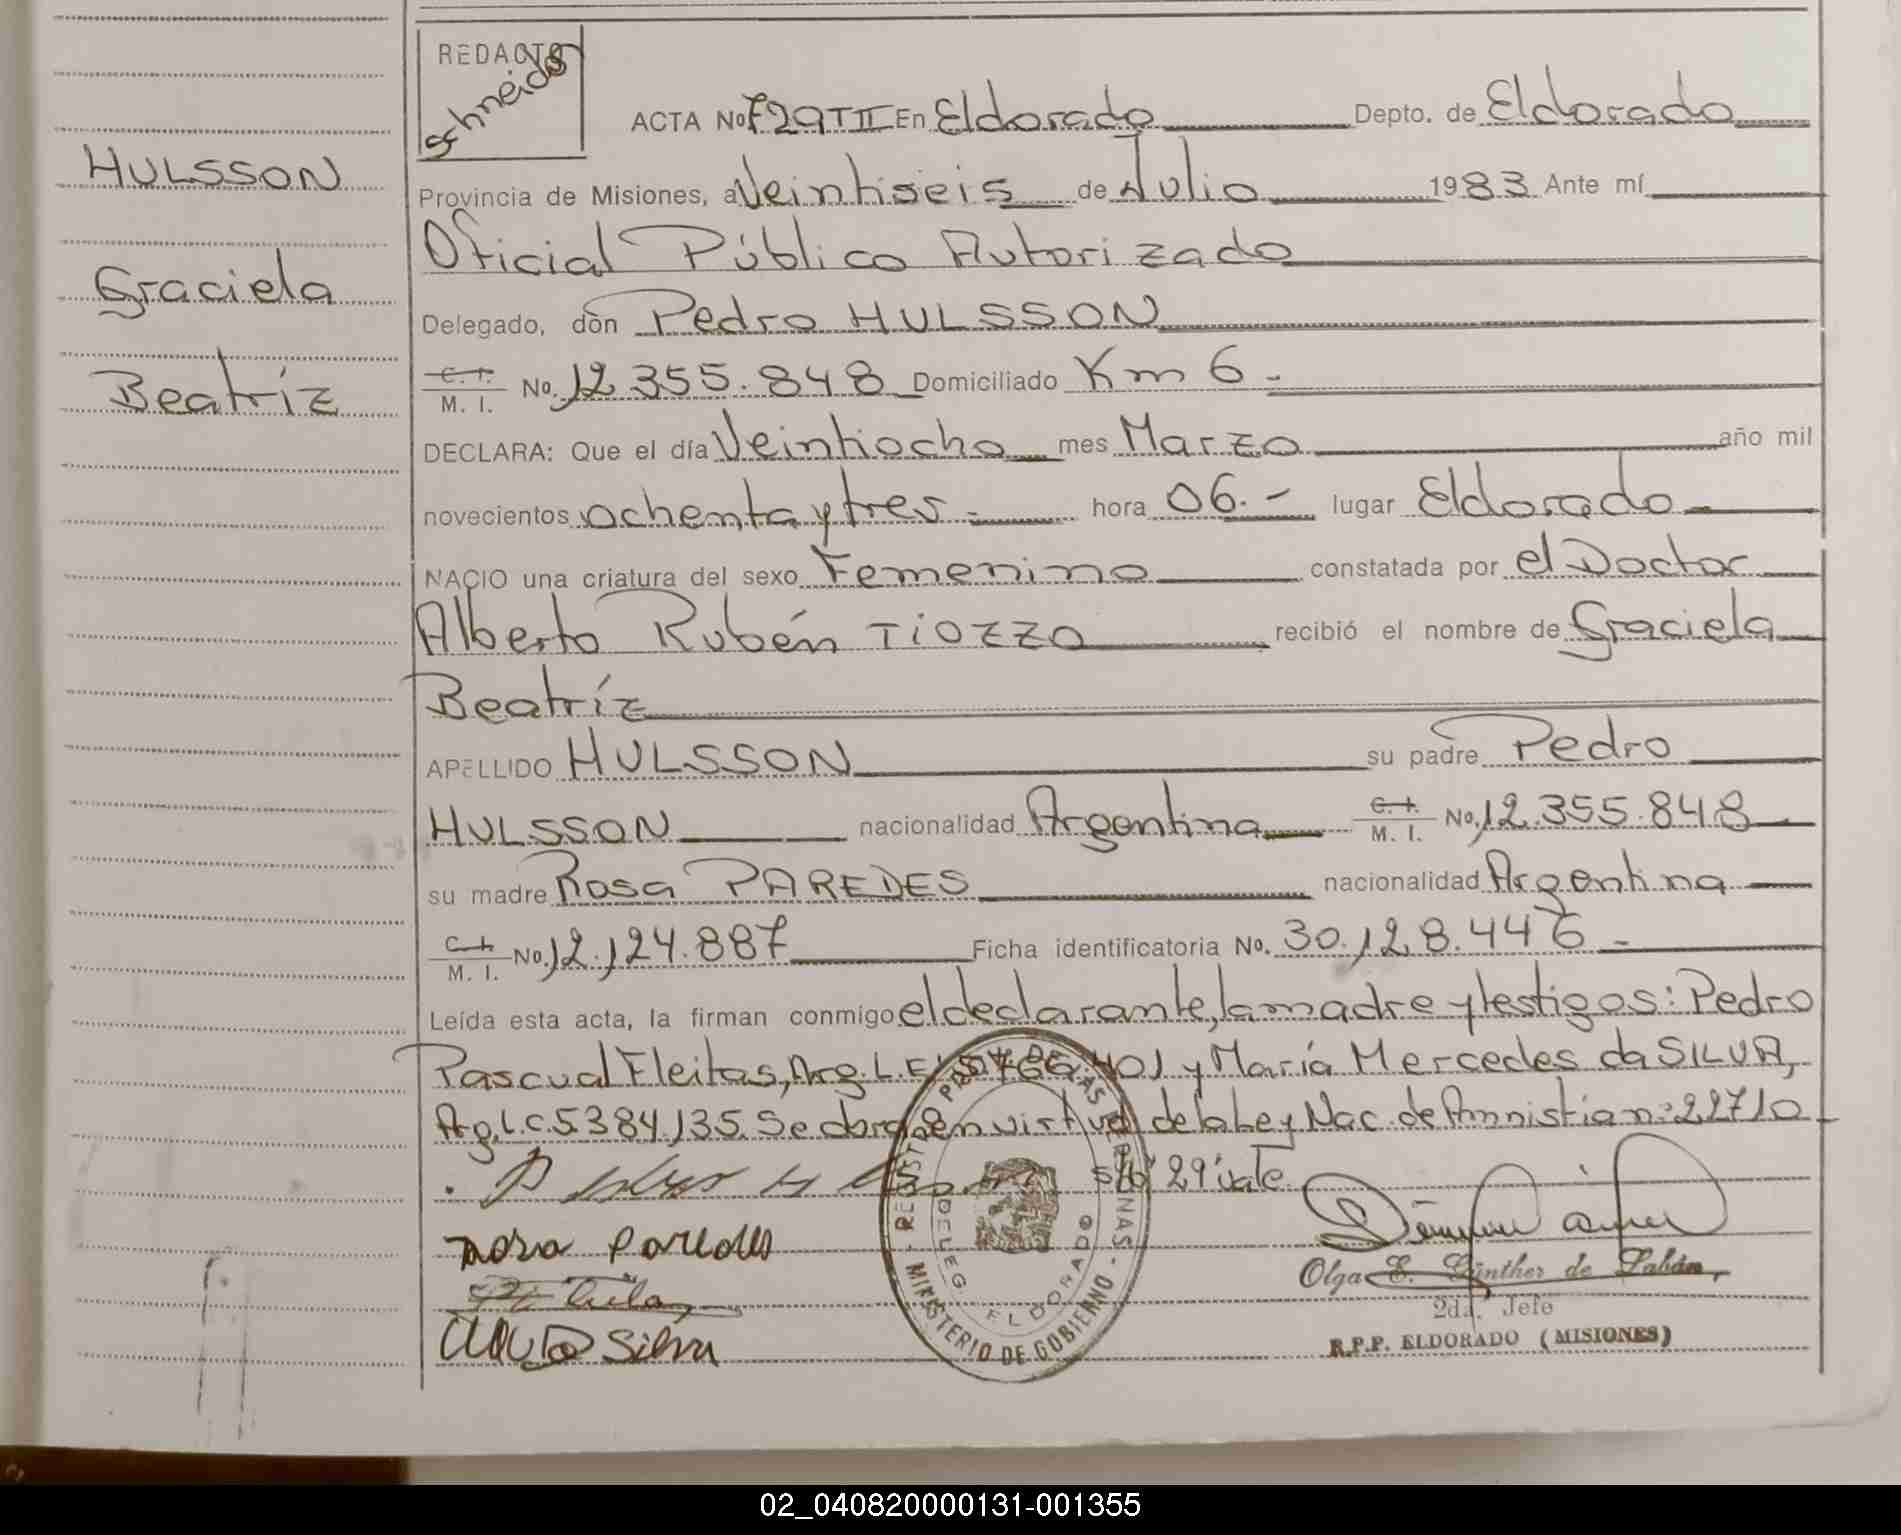 HULSSON
Graciela
Beatríz
REDACTO
Schneider
ACTA No 729TII En Eldorado Depto. de Eldorado
Provincia de Misiones, a Veintiseis de Julio 1983 Ante mí
Oficial Público Autorizado
Delegado, don Pedro HULSSON
C. I. M. I. No. 12.355.848 Domiciliado Km 6.-
DECLARA: Que el día Veintiocho mes Marzo año mil
novecientos ochenta y tres.- hora 06.- lugar Eldorado
NACIO una criatura del sexo Femenino constatada por el Doctor
Alberto Rubén TIOZZO recibió el nombre de Graciela
Beatríz
APELLIDO HULSSON su padre Pedro
HULSSON nacionalidad Argentina C. I. M. I. No. 12.355.848
su madre Rosa PAREDES nacionalidad Argentina
C. I. M. I. No. 12.124.887 Ficha identificatoria No. 30.128.446.-
Leída esta acta, la firman conmigo el declarante, la madre y testigos: Pedro
Pascual Fleitas, Arg. L.E. 401 y María Mercedes da SILVA,
Arg. L.C. 5384135. Se labra en virtud de la Ley Nac. de Amnistía n: 22710
s/b 29 vale
Rosa Paredes
da Silva
REGISTRO PROV. DE LAS PERSONAS - MINISTERIO DE GOBIERNO -
DELEG. ELDORADO
Olga E. Günther de Fabán
2da. Jefe
R.P.P. ELDORADO (MISIONES)
02_040820000131-001355